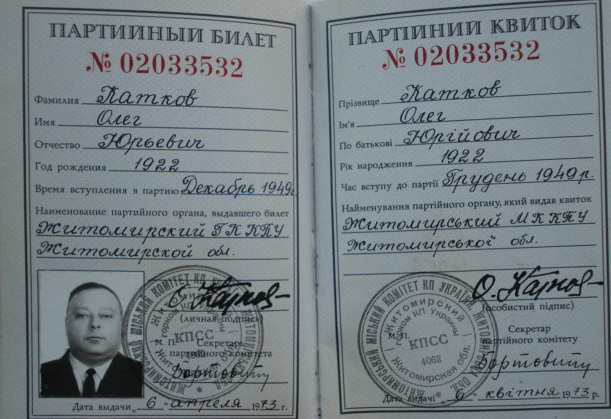 ПАРТИЙНЫЙ БИЛЕТ
№ 02033532
Фамилия Катков
Имя Олег
Отчество Юрьевич
Год рождения 1922
Время вступления в партию Декабрь 1949г.
Наименование партийного органа, выдавшего билет
Житомирский ГК КПУ
Житомирской обл.
(личная подпись)
М.П.
Секретарь
партийного комитета
Дата выдачи 6 апреля 1973 г.
КПСС
ПАРТІЙНИЙ КВИТОК
№ 02033532
Прізвище Катков
Ім'я Олег
По батькові Юрійович
Рік народження 1922
Час вступу до партії Грудень 1949 р.
Найменування партійного органу, який видав квиток
Житомирський МК КПУ
Житомирської обл.
О. Катков
(особистий підпис)
М.П.
Секретар
партійного комітету
Дата видачі 6 квітня 1973 р.
ЖИТОМИРСЬКИЙ МІСЬКИЙ КОМІТЕТ КП УКРАЇНИ
Житомирский горком КП Украины
КПСС
4062
Житомирская обл.